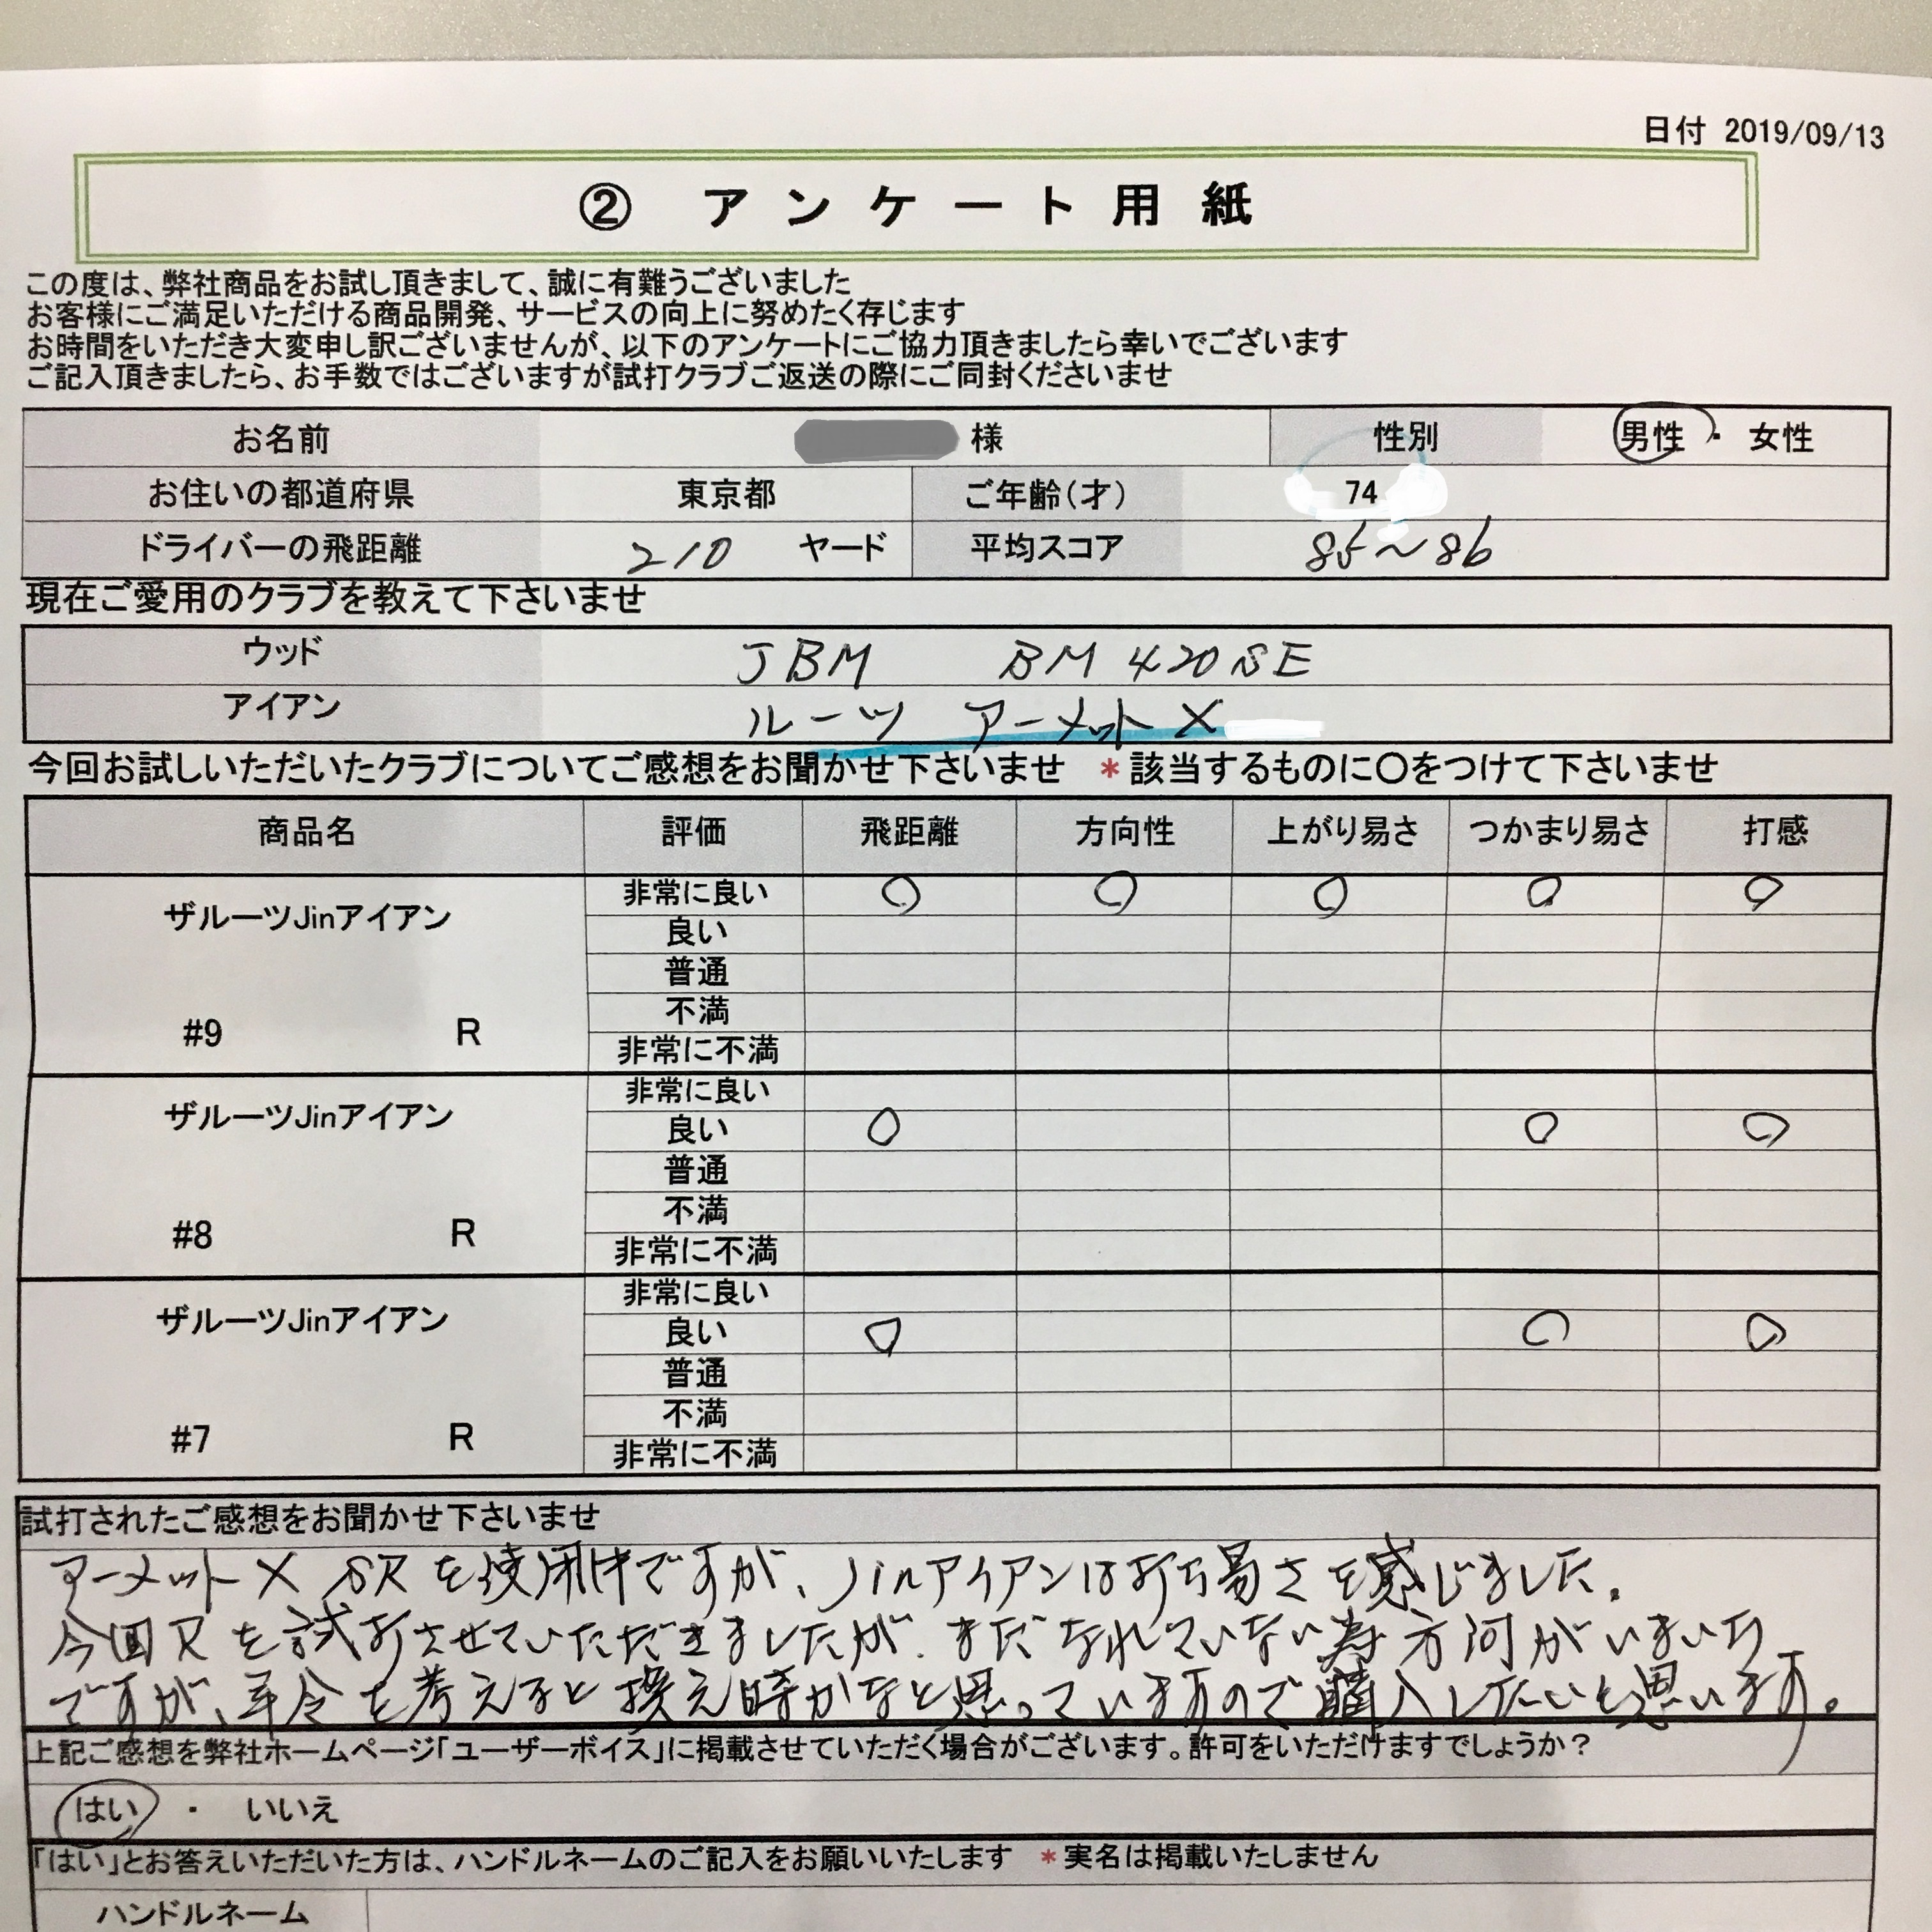 日付 2019/09/13
② アンケート用紙
この度は、弊社商品をお試し頂きまして、誠に有難うございました
お客様にご満足いただける商品開発、サービスの向上に努めたく存じます
お時間をいただき大変申し訳ございませんが、以下のアンケートにご協力頂きましたら幸いでございます
ご記入頂きましたら、お手数ではございますが試打クラブご返送の際にご同封くださいませ
お名前 様 性別 男性 ・ 女性
お住いの都道府県 東京都 ご年齢(才) 74
ドライバーの飛距離 210 ヤード 平均スコア 85～86
現在ご愛用のクラブを教えて下さいませ
ウッド JBM BM 420SE
アイアン ルーツ アーメットX
今回お試しいただいたクラブについてご感想をお聞かせ下さいませ *該当するものに〇をつけて下さいませ
商品名 評価 飛距離 方向性 上がり易さ つかまり易さ 打感
ザルーツJinアイアン 非常に良い 〇 〇 〇 〇 〇
良い
普通
#9 R 不満
非常に不満
非常に良い
ザルーツJinアイアン 良い 〇 〇 〇
普通
#8 R 不満
非常に不満
非常に良い
ザルーツJinアイアン 良い 〇 〇 〇
普通
#7 R 不満
非常に不満
試打されたご感想をお聞かせ下さいませ
アーメットX SRを使用中ですが、Jinアイアンは打ち易さを感じました。
今回Rを試打させていただきましたが、まだなれていない為方向がいまいち
ですが、年令を考えると換え時かなと思っていますので購入したいと思います。
上記ご感想を弊社ホームページ「ユーザーボイス」に掲載させていただく場合がございます。許可をいただけますでしょうか？
はい ・ いいえ
「はい」とお答えいただいた方は、ハンドルネームのご記入をお願いいたします *実名は掲載いたしません
ハンドルネーム